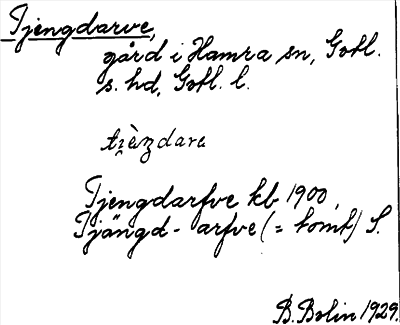 Tjengdarve,
gård i Hamra sn, Gotl.
s. hd, Gotl. l.
Tjengdarfve kb 1900,
Tjängd- arfve (= tomt) S.
B. Bolin 1929.